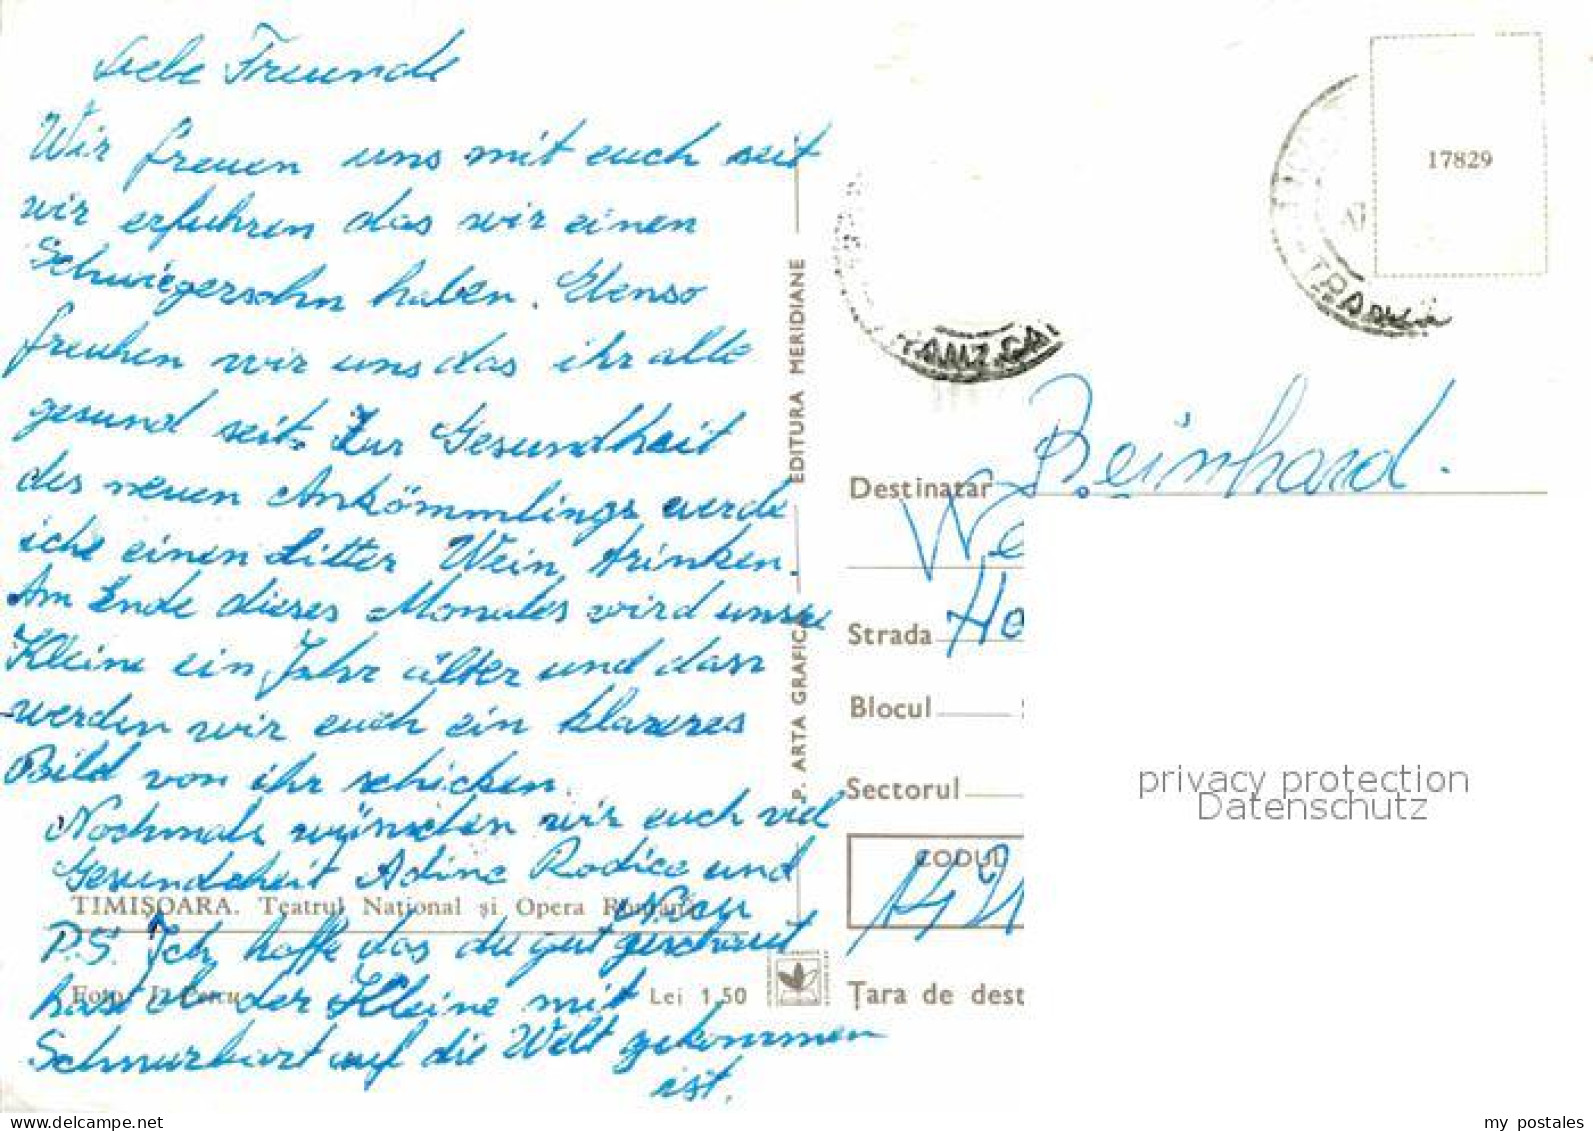 Liebe Freunde
Wir freuen uns mit euch seit
wir erfuhren das wir einen
Schwiegersohn haben. Ebenso
freuhen wir uns das ihr alle
gesund seit. Zur Gesundheit
des neuen Ankömmlings werde
iche einen Litter Wein trinken.
Am Ende dieses Monates wird unsre
Kleine ein Jahr älter und dan
werden wir euch ein klareres
Bild von ihr schicken.
Nochmals wünschen wir euch viel
Gesundcheit Adina Rodica und
Nicu
TIMIȘOARA. Teatrul Național și Opera Română
P.S. Ich hoffe das du gut geschaut
hast ob der Kleine mit
Foto: I. Petcu
Lei 1,50
Schnurbart auf die Welt gekommen
ist.
I. P. ARTA GRAFICĂ
EDITURA MERIDIANE
17829
Destinatar Reinhard.
We
Strada He
Blocul
Sectorul
CODUL
Țara de dest
privacy protection
Datenschutz
my postales